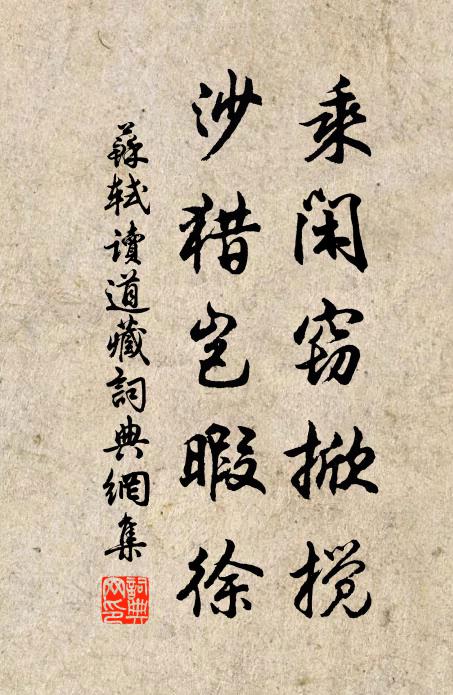 乘闲窃掀搅
沙猎岂暇徐
蘇軾讀道藏詞典網集
詞典网印